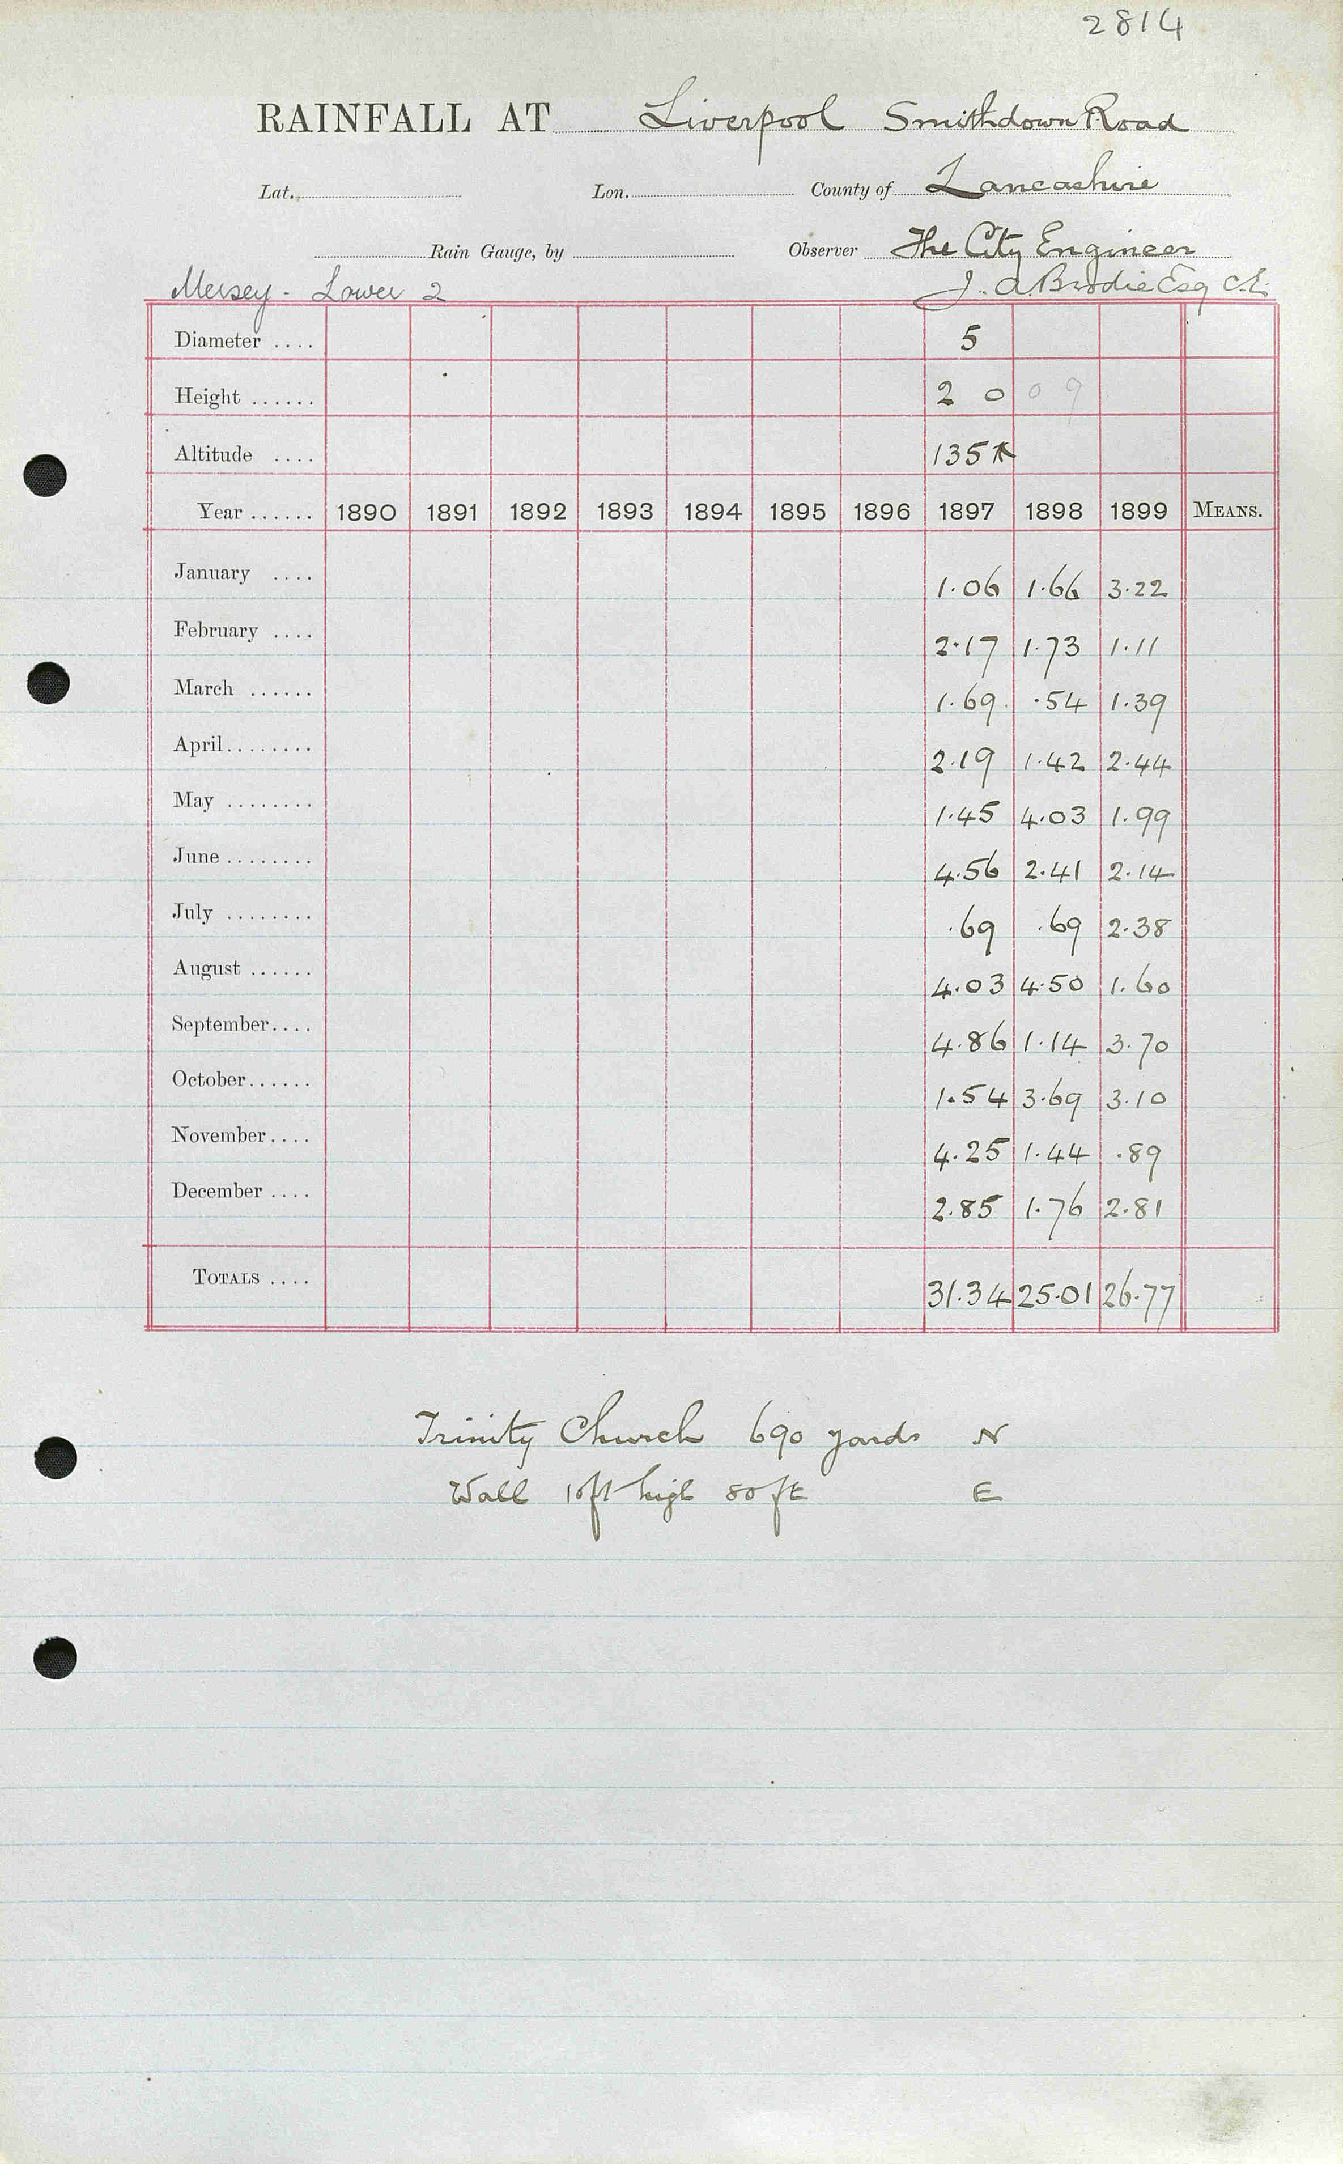 2814
RAINFALL AT Liverpool Smithdown Road
Lat. Lon. County of Lancashire
Rain Gauge, by Observer The City Engineer
Mersey - Lower 2 J. A. Brodie Esq C.E.
Diameter .... 5
Height ...... 2 0 0 9
Altitude .... 135
Year ...... 1890 1891 1892 1893 1894 1895 1896 1897 1898 1899 MEANS.
January .... 1.06 1.66 3.22
February .... 2.17 1.73 1.11
March ...... 1.69 .54 1.39
April........ 2.19 1.42 2.44
May ........ 1.45 4.03 1.99
June ........ 4.56 2.41 2.14
July ........ .69 .69 2.38
August ...... 4.03 4.50 1.60
September.... 4.86 1.14 3.70
October...... 1.54 3.69 3.10
November.... 4.25 1.44 .89
December .... 2.85 1.76 2.81
TOTALS .... 31.34 25.01 26.77
Trinity Church 690 yards N
Wall 10ft high 80 ft E